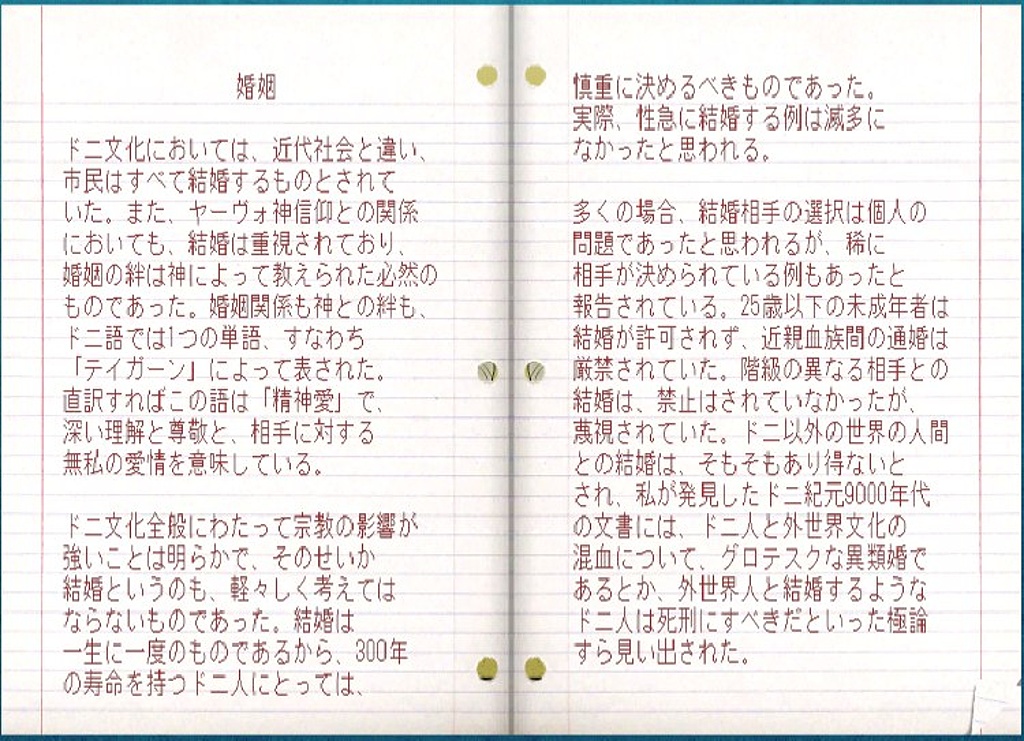 婚姻
ドニ文化においては、近代社会と違い、
市民はすべて結婚するものとされて
いた。また、ヤーヴォ神信仰との関係
においても、結婚は重視されており、
婚姻の絆は神によって教えられた必然の
ものであった。婚姻関係も神との絆も、
ドニ語では1つの単語、すなわち
「テイガーン」によって表された。
直訳すればこの語は「精神愛」で、
深い理解と尊敬と、相手に対する
無私の愛情を意味している。
ドニ文化全般にわたって宗教の影響が
強いことは明らかで、そのせいか
結婚というのも、軽々しく考えては
ならないものであった。結婚は
一生に一度のものであるから、300年
の寿命を持つドニ人にとっては、
慎重に決めるべきものであった。
実際、性急に結婚する例は滅多に
なかったと思われる。
多くの場合、結婚相手の選択は個人の
問題であったと思われるが、稀に
相手が決められている例もあったと
報告されている。25歳以下の未成年者は
結婚が許可されず、近親血族間の通婚は
厳禁されていた。階級の異なる相手との
結婚は、禁止はされていなかったが、
蔑視されていた。ドニ以外の世界の人間
との結婚は、そもそもあり得ないと
され、私が発見したドニ紀元9000年代
の文書には、ドニ人と外世界文化の
混血について、グロテスクな異類婚で
あるとか、外世界人と結婚するような
ドニ人は死刑にすべきだといった極論
すら見い出された。